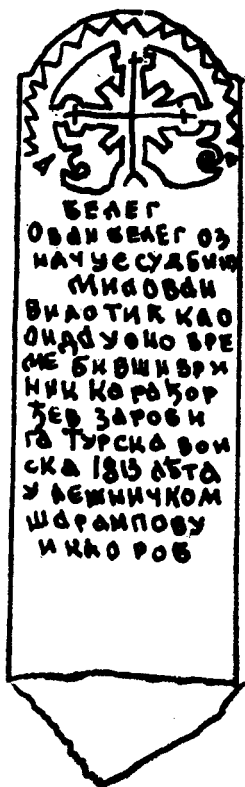 БЕЛЕГ
ОВАИ БЕЛЕГ ОЗ
НАЧУЕ СУДБИНУ
МИЛОВАН
ВИЛОТИЋ КАО
ОНДА У ОНО ВРЕ
МЕ БИВШИ ВРИ
НИК КАРАЂОР
ЂЕВ ЗАРОБИ
ГА ТУРСКА ВОИ
СКА 1813 ЛѢТА
У ЛЕШНИЧКОМ
ШАРАМПОВУ
И КАО РОБ